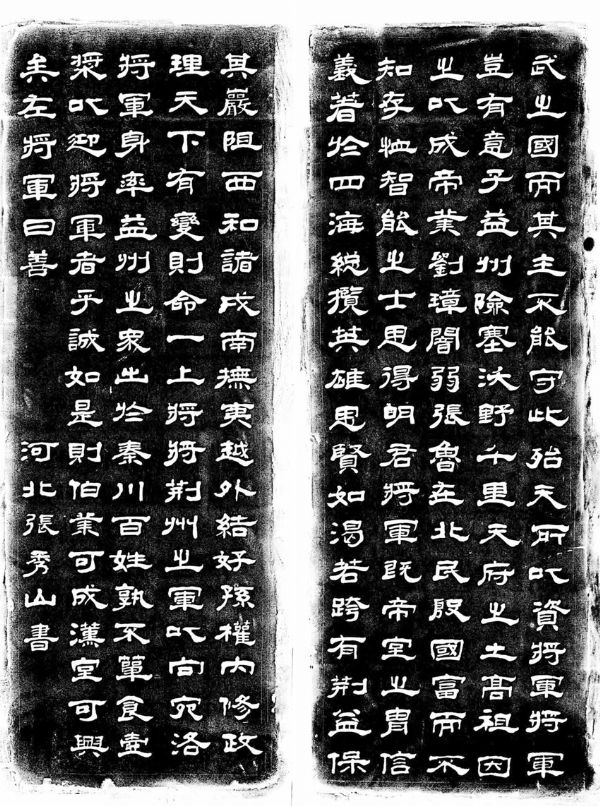 武之國而其主不能守此殆天所以資將軍將軍
豈有意乎益州險塞沃野千里天府之土高祖因
之以成帝業劉璋闇弱張魯在北民殷國富而不
知存恤智能之士思得明君將軍既帝室之胄信
義著於四海總攬英雄思賢如渴若跨有荊益保
其巖阻西和諸戎南撫夷越外結好孫權內修政
理天下有變則命一上將將荊州之軍以向宛洛
將軍身率益州之衆出於秦川百姓孰不簞食壺
漿以迎將軍者乎誠如是則伯業可成漢室可興
矣左將軍曰善 河北張秀山書